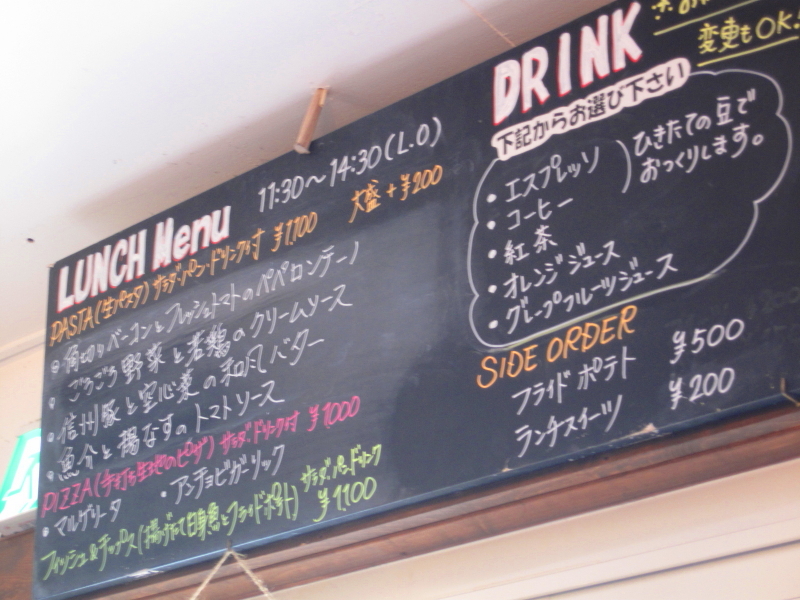 LUNCH Menu 11:30～14:30(L.O)
PASTA(生パスタ) サラダ・パン・ドリンク付 ¥1,100 大盛+¥200
・角切りベーコンとフレッシュトマトのペペロンチーノ
・ごろごろ野菜と若鶏のクリームソース
・信州豚と空心菜の和風バター
・魚介と揚なすのトマトソース
PIZZA(手打ち生地のピザ) サラダ・ドリンク付 ¥1,000
・マルゲリータ ・アンチョビガーリック
フィッシュ&チップス(揚げたて白身魚とフライドポテト) サラダ・パン・ドリンク ¥1,100
DRINK
変更もOK!
下記からお選び下さい
・エスプレッソ
・コーヒー
ひきたての豆で
おつくりします。
・紅茶
・オレンジジュース
・グレープフルーツジュース
SIDE ORDER
フライドポテト ¥500
ランチスイーツ ¥200